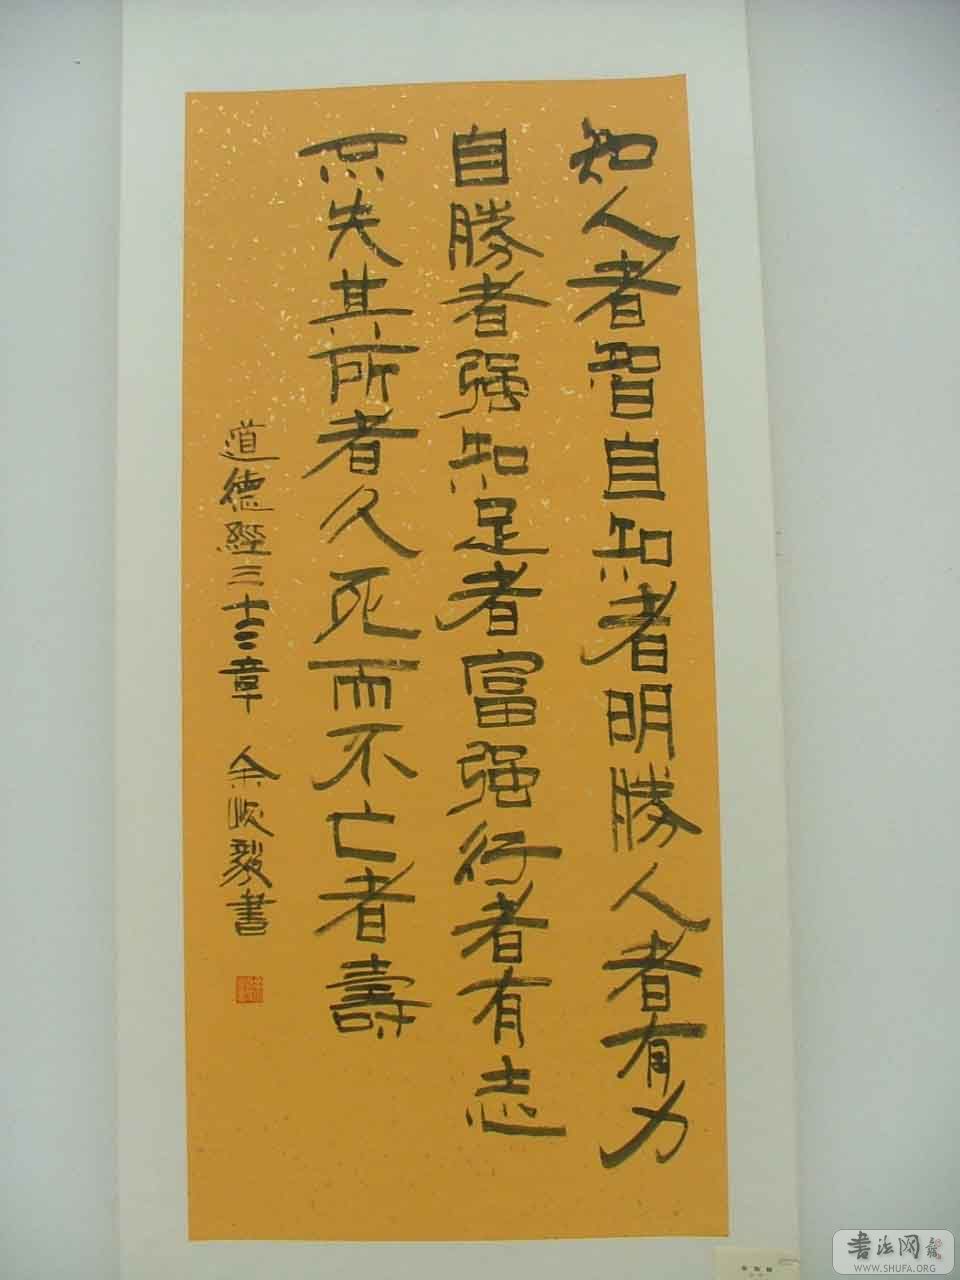 知人者智自知者明勝人者有力
自勝者强知足者富强行者有志
不失其所者久死而不亡者壽
道德經三十三章 余毅書
書法网
WWW.SHUFA.ORG